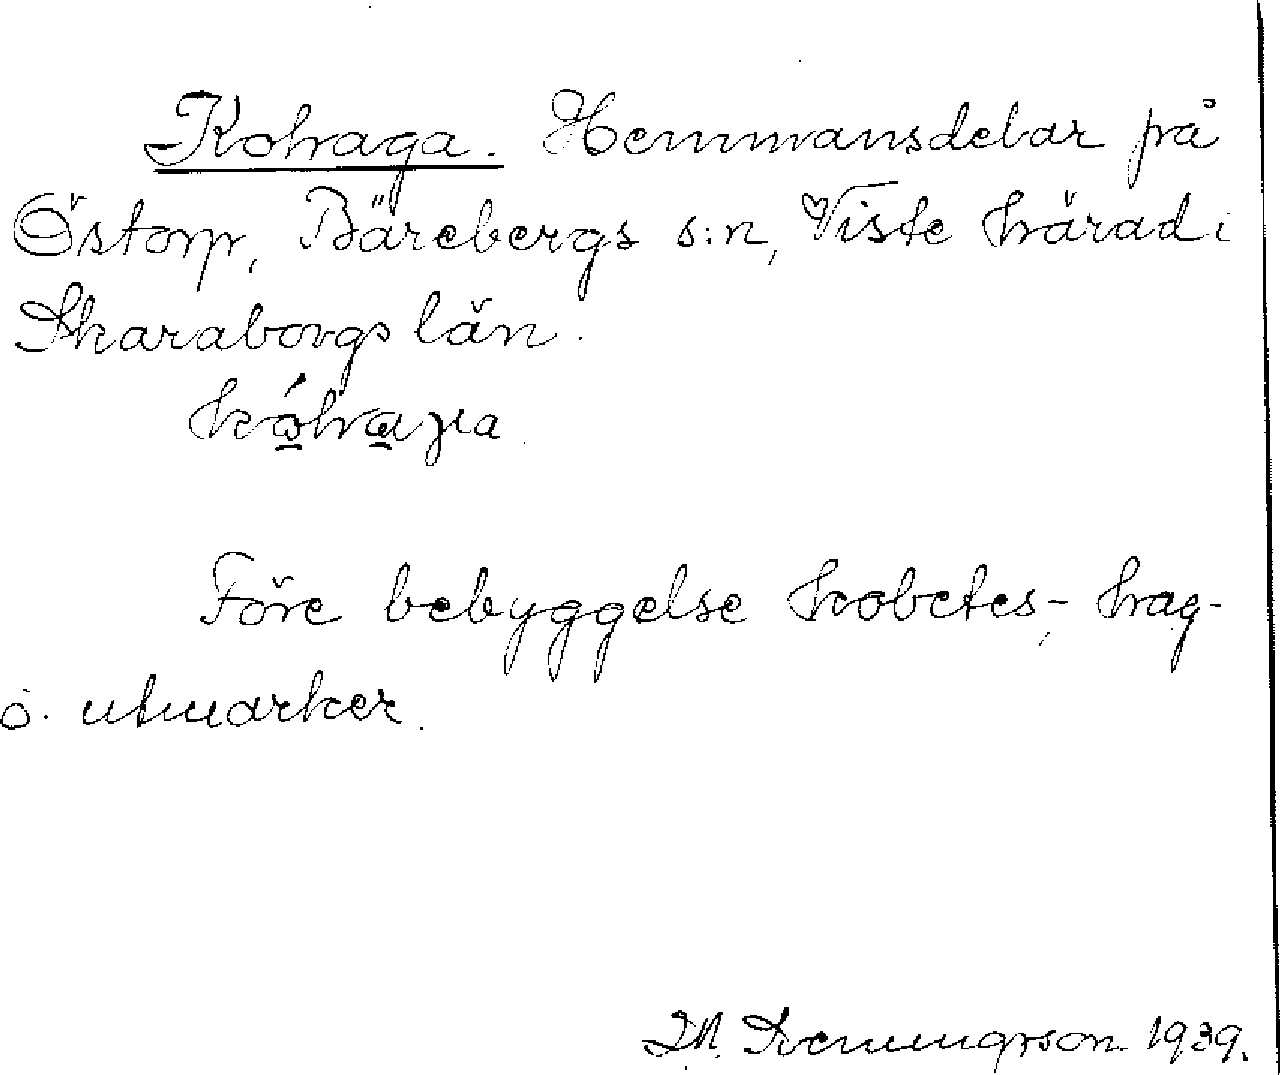 Kohaga. Hemmansdelar på
Östorp, Bärebergs s:n, Viste härad i
Skaraborgs län.
kóhaga
Före bebyggelse kobetes-, hag-
o. utmarker.
1939.